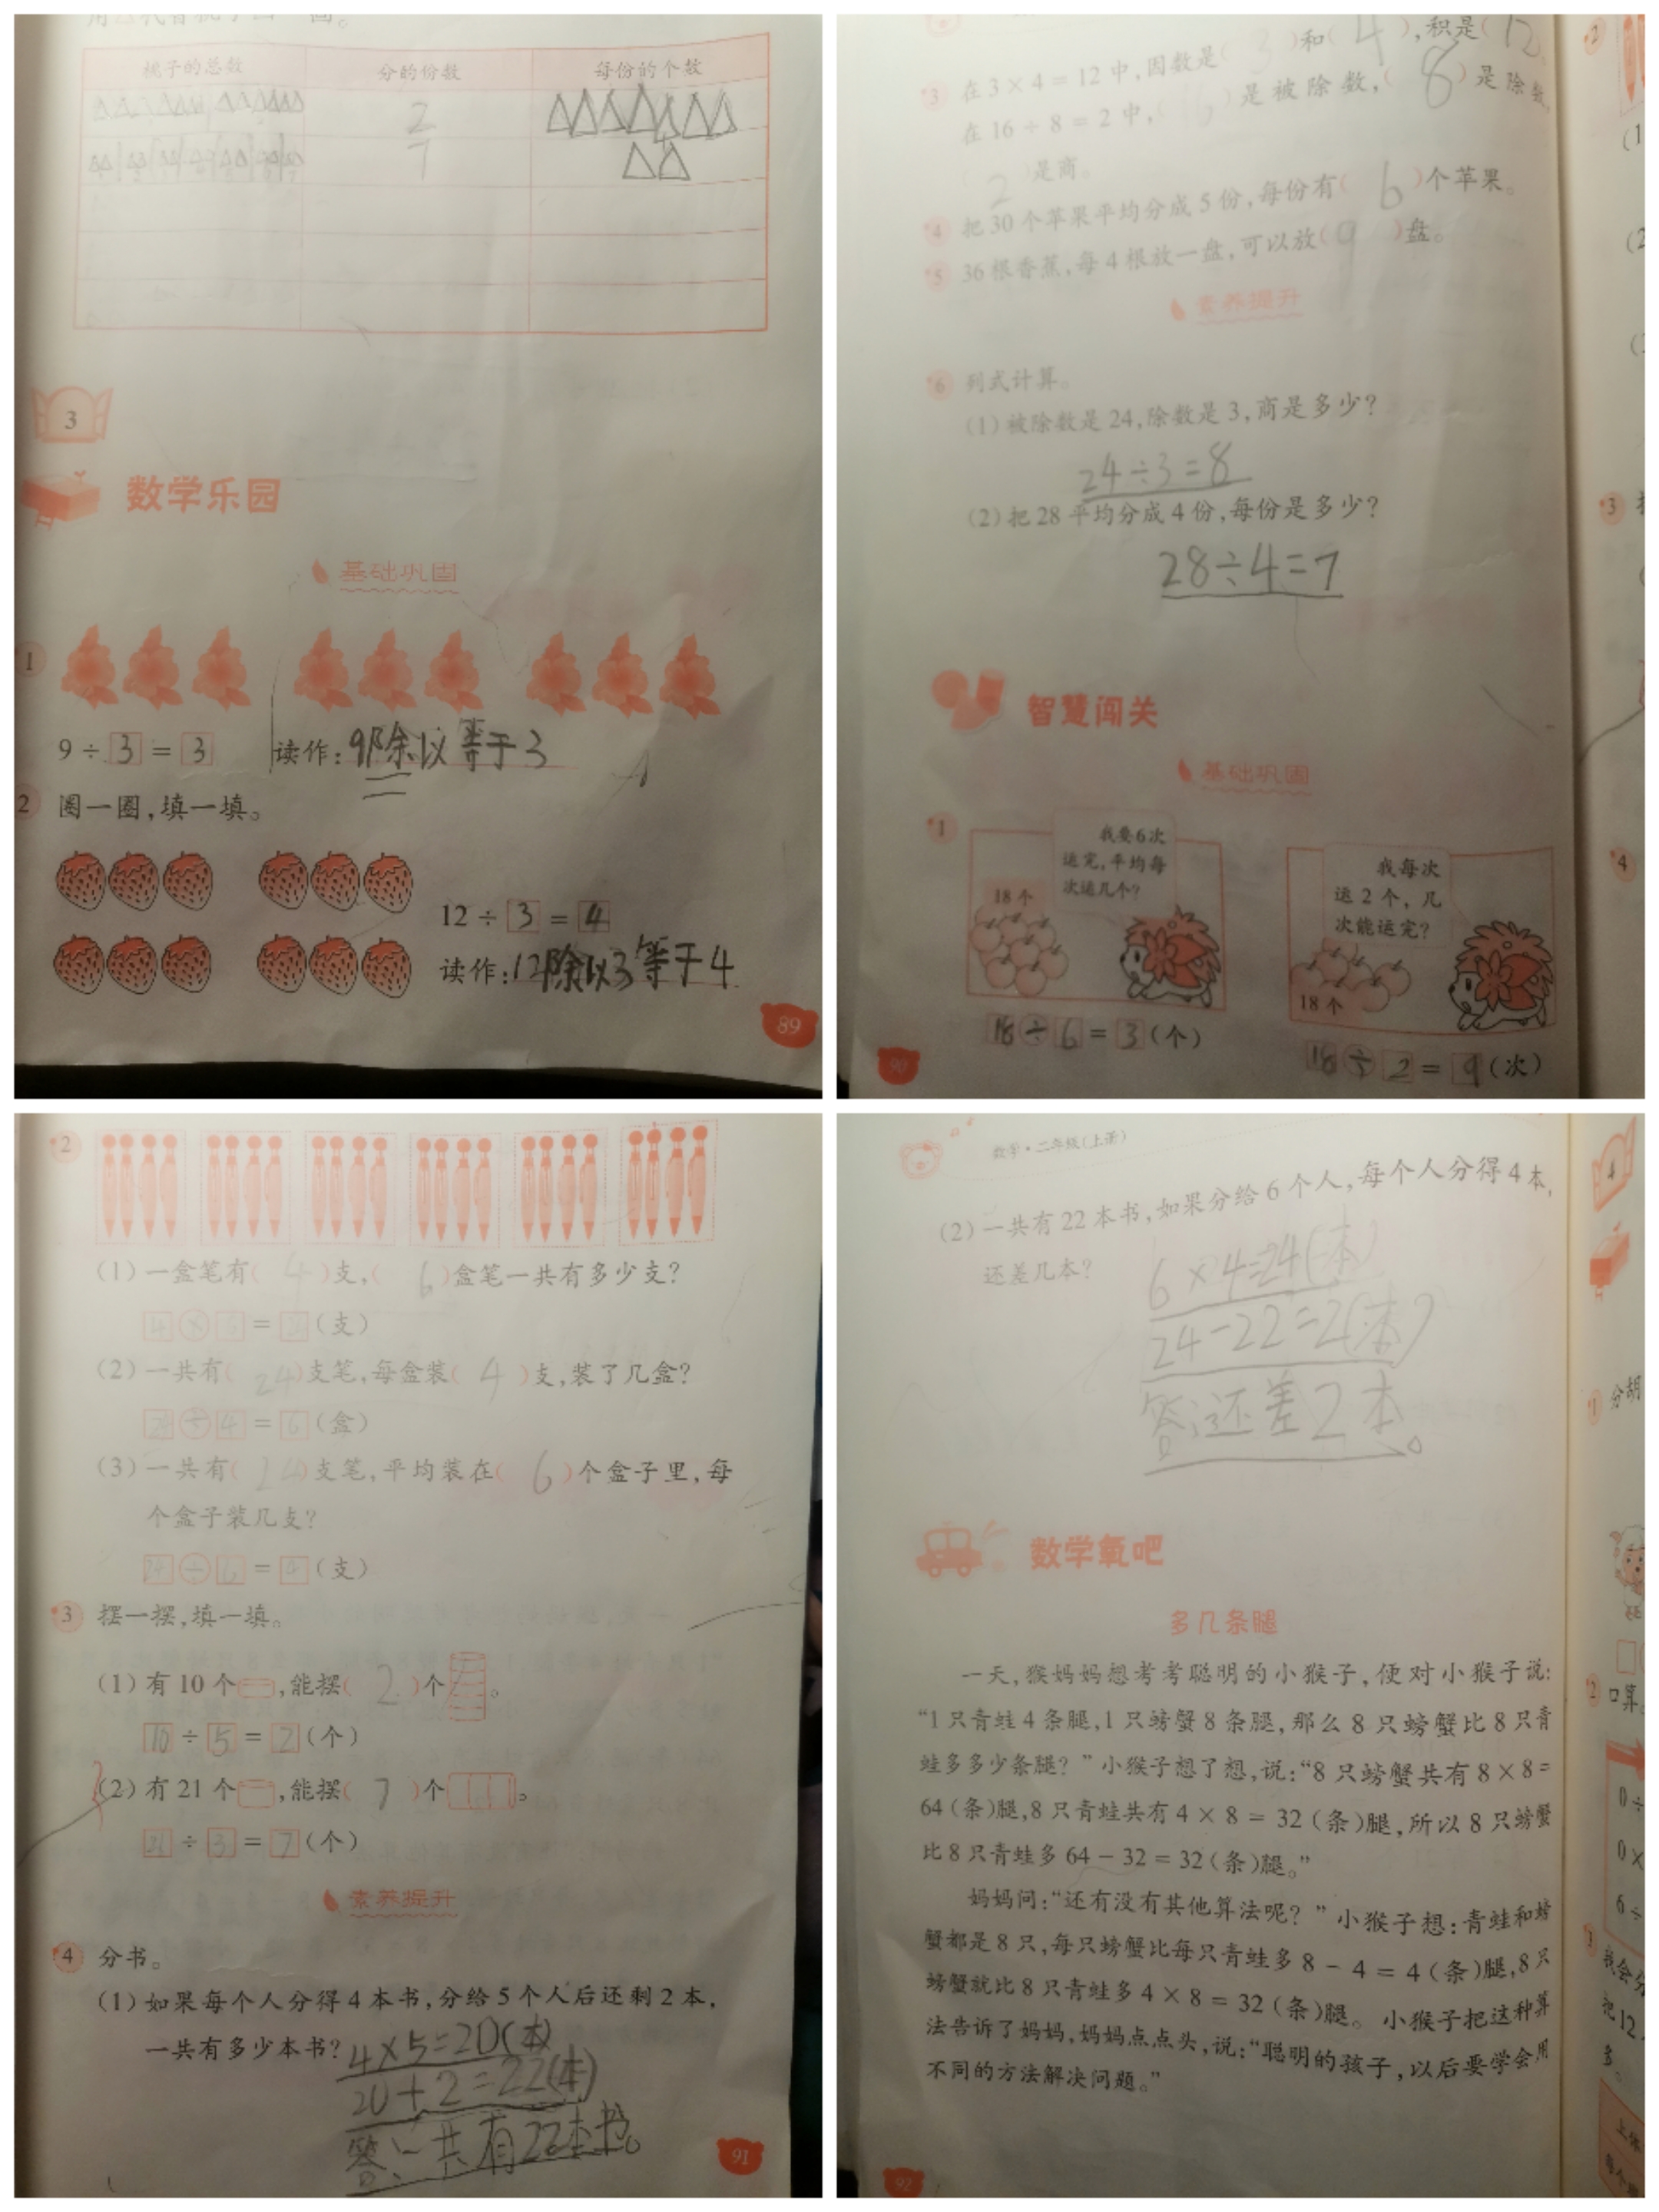 桃子的总数 分的份数 每份的个数
2
7
3
数学乐园
基础巩固
1
9÷3=3 读作:9除以等于3
2 圈一圈,填一填。
12÷3=4
读作:12除以3等于4
89
3 在3×4=12中,因数是(3)和(4),积是(12
在16÷8=2中,(16)是被除数,(8)是除数,
(2)是商。
4 把30个苹果平均分成5份,每份有(6)个苹果。
5 36根香蕉,每4根放一盘,可以放(9)盘。
素养提升
6 列式计算。
(1)被除数是24,除数是3,商是多少?
24÷3=8
(2)把28平均分成4份,每份是多少?
28÷4=7
智慧闯关
基础巩固
1
我要6次
运完,平均每
次运几个?
18个
18÷6=3(个)
我每次
运2个,几
次能运完?
18个
18÷2=9(次)
90
2
(1)一盒笔有(4)支,(6)盒笔一共有多少支?
=(支)
(2)一共有(24)支笔,每盒装(4)支,装了几盒?
24÷4=6(盒)
(3)一共有(24)支笔,平均装在(6)个盒子里,每
个盒子装几支?
24÷6=4(支)
3 摆一摆,填一填。
(1)有10个,能摆(2)个。
10÷5=2(个)
(2)有21个,能摆(7)个。
21÷3=7(个)
素养提升
4 分书。
(1)如果每个人分得4本书,分给5个人后还剩2本,
一共有多少本书?
4×5=20(本)
20+2=22(本)
答:一共有22本书。
91
数学·二年级(上册)
(2)一共有22本书,如果分给6个人,每个人分得4本,
还差几本?
6×4=24(本)
24-22=2(本)
答:还差2本。
数学氧吧
多几条腿
一天,猴妈妈想考考聪明的小猴子,便对小猴子说:
“1只青蛙4条腿,1只螃蟹8条腿,那么8只螃蟹比8只青
蛙多多少条腿?”小猴子想了想,说:“8只螃蟹共有8×8=
64(条)腿,8只青蛙共有4×8=32(条)腿,所以8只螃蟹
比8只青蛙多64-32=32(条)腿。”
妈妈问:“还有没有其他算法呢?”小猴子想:青蛙和螃
蟹都是8只,每只螃蟹比每只青蛙多8-4=4(条)腿,8只
螃蟹就比8只青蛙多4×8=32(条)腿。小猴子把这种算
法告诉了妈妈,妈妈点点头,说:“聪明的孩子,以后要学会用
不同的方法解决问题。”
92